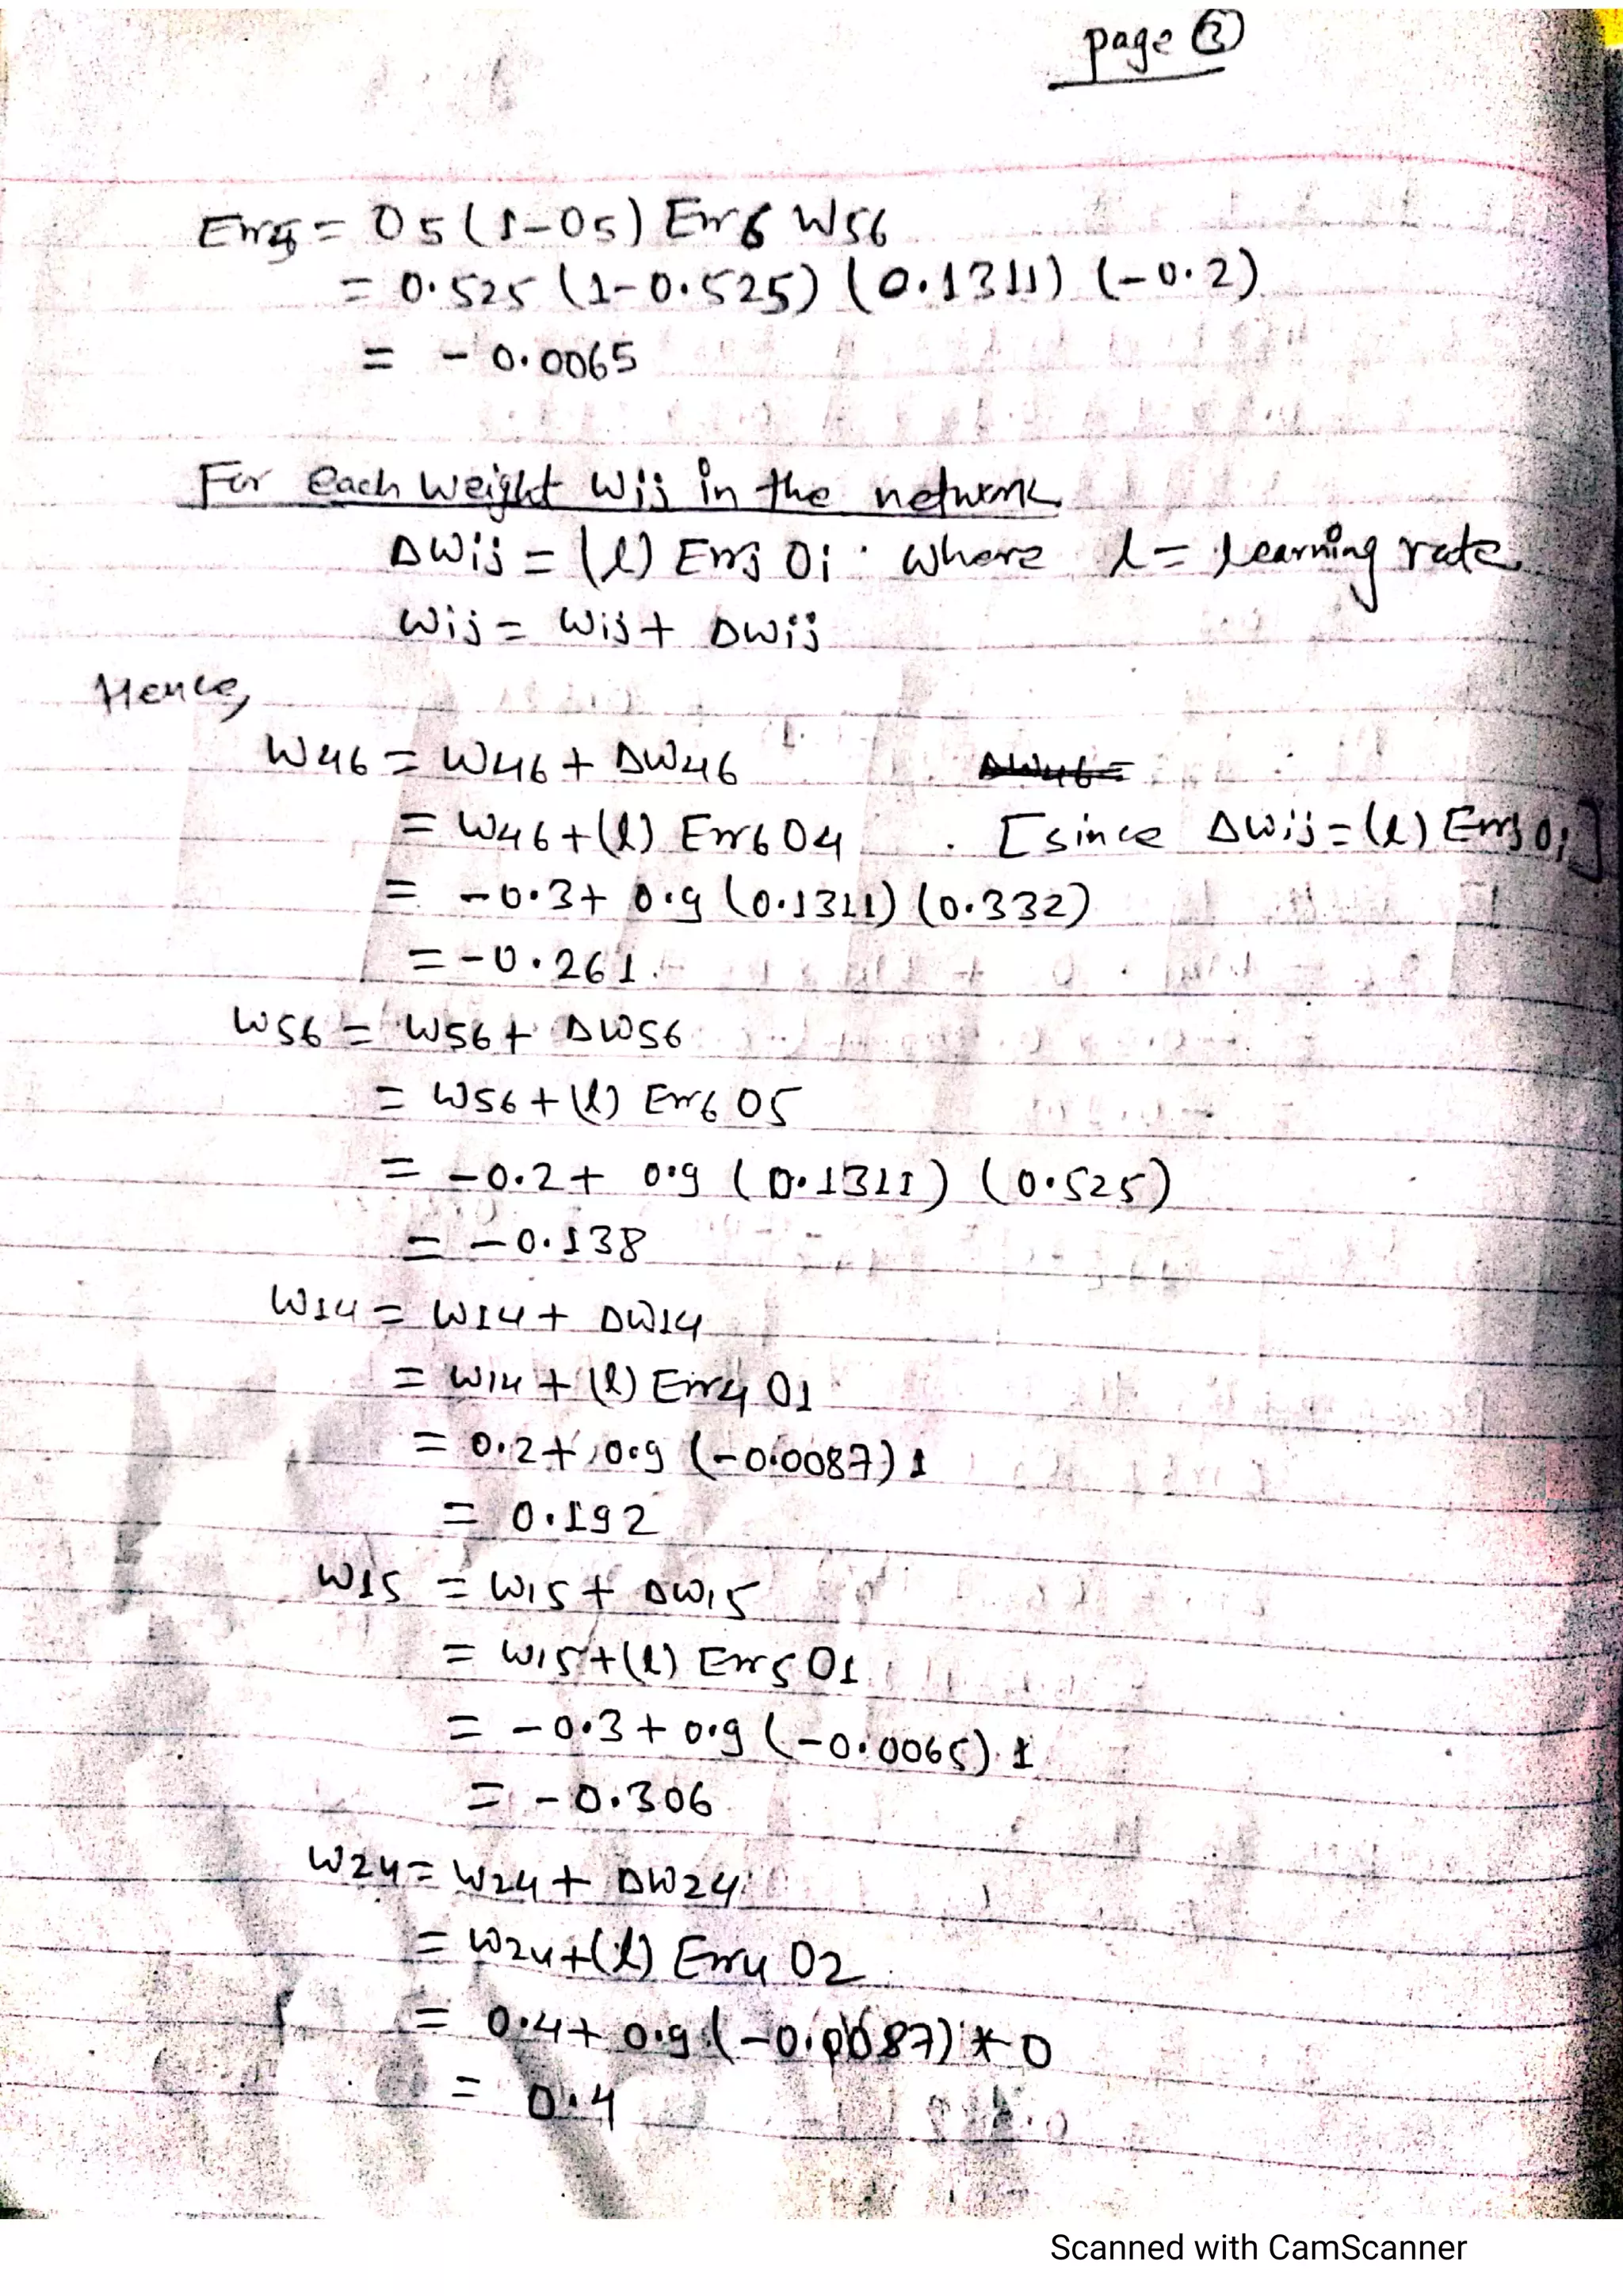 page ③
Err5 = O5 (1-O5) Err6 W56
= 0.525 (1-0.525) (0.1311) (-0.2)
= -0.0065
For each weight Wij in the network
ΔWij = (l) Errj Oi where l = learning rate
Wij = Wij + ΔWij
Hence,
W46 = W46 + ΔW46 ΔW46=
= W46 + (l) Err6 O4 [since ΔWij = (l) Errj Oi]
= -0.3 + 0.9 (0.1311) (0.332)
= -0.261
W56 = W56 + ΔW56
= W56 + (l) Err6 O5
= -0.2 + 0.9 (0.1311) (0.525)
= -0.138
W14 = W14 + ΔW14
= W14 + (l) Err4 O1
= 0.2 + 0.9 (-0.0087) 1
= 0.192
W15 = W15 + ΔW15
= W15 + (l) Err5 O1
= -0.3 + 0.9 (-0.0065) 1
= -0.306
W24 = W24 + ΔW24
= W24 + (l) Err4 O2
= 0.4 + 0.9 (-0.0087) * 0
= 0.4
Scanned with CamScanner